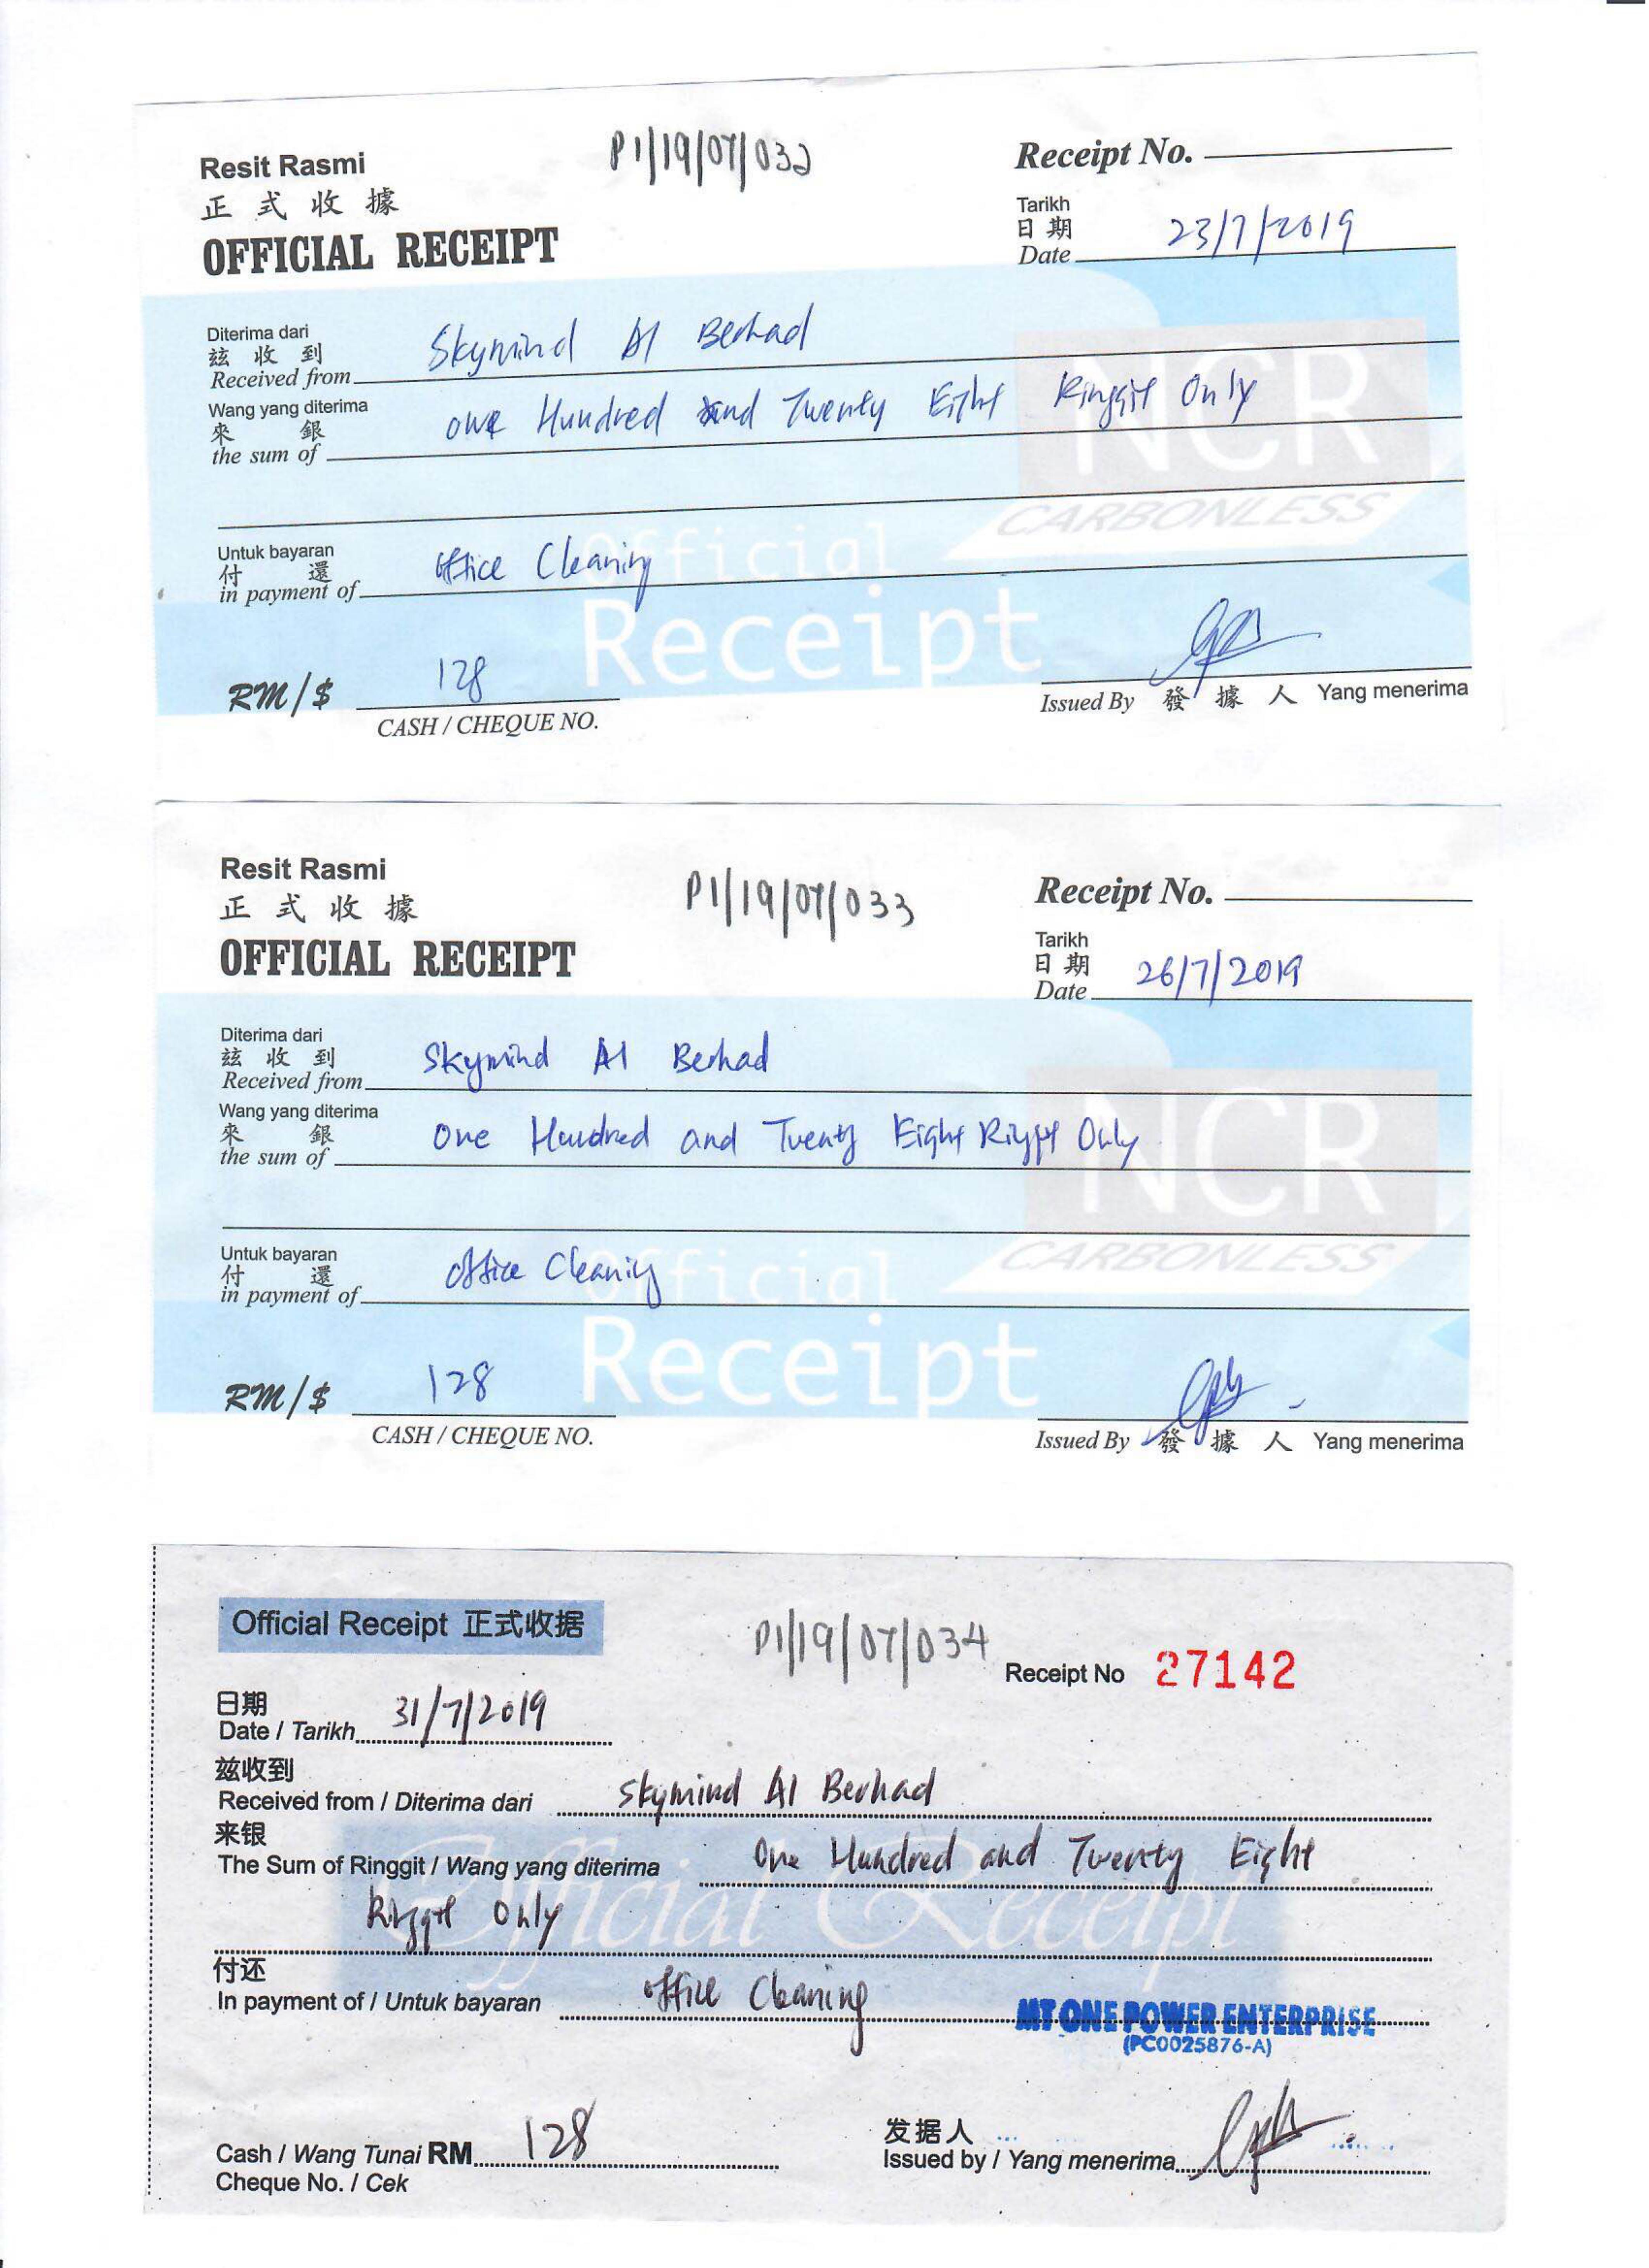 Resit Rasmi
P1/19/07/032
Receipt No.
正式收據
OFFICIAL RECEIPT
Tarikh
日期
Date 23/7/2019
Diterima dari
兹收到
Received from Skymind AI Berhad
Wang yang diterima
來銀
the sum of One Hundred and Twenty Eight Ringgit Only
NCR
CARBONLESS
Untuk bayaran
付還
in payment of Office Cleaning
Official
Receipt
RM/$ 128
CASH / CHEQUE NO.
Issued By 發據人 Yang menerima
Resit Rasmi
P1/19/07/033
Receipt No.
正式收據
OFFICIAL RECEIPT
Tarikh
日期
Date 26/7/2019
Diterima dari
兹收到
Received from Skymind AI Berhad
Wang yang diterima
來銀
the sum of One Hundred and Twenty Eight Ringgit Only
NCR
CARBONLESS
Untuk bayaran
付還
in payment of Office Cleaning
Official
Receipt
RM/$ 128
CASH / CHEQUE NO.
Issued By 發據人 Yang menerima
Official Receipt 正式收据
P1/19/07/034
Receipt No 27142
日期
Date / Tarikh 31/7/2019
兹收到
Received from / Diterima dari Skymind AI Berhad
来银
The Sum of Ringgit / Wang yang diterima One Hundred and Twenty Eight
Ringgit Only
Official Receipt
付还
In payment of / Untuk bayaran Office Cleaning
MT ONE POWER ENTERPRISE
(PC0025876-A)
Cash / Wang Tunai RM 128
Cheque No. / Cek
发据人
Issued by / Yang menerima